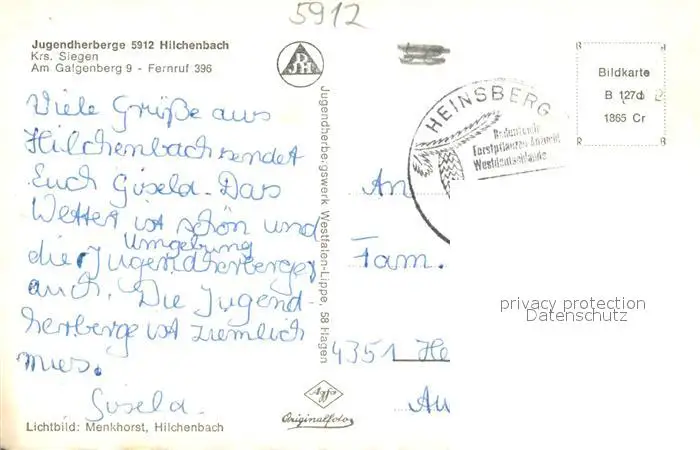 5912
Jugendherberge 5912 Hilchenbach
Krs. Siegen
Am Galgenberg 9 - Fernruf 396
DJH
Viele Grüße aus
Hilchenbach sendet
Euch Gisela. Das
Wetter ist schön und
Umgebung
die Jugendherberge
auch. Die Jugend-
herberge ist ziemlich
mies.
Gisela.
Lichtbild: Menkhorst, Hilchenbach
Jugendherbergswerk Westfalen-Lippe, 58 Hagen
Agfa
Originalfoto
HEINSBERG
Bedeutende
Forstpflanzen-Anzucht
Westdeutschlands
Bildkarte
B 127d
1865 Cr
An
Fam.
4351 He
Au
privacy protection
Datenschutz